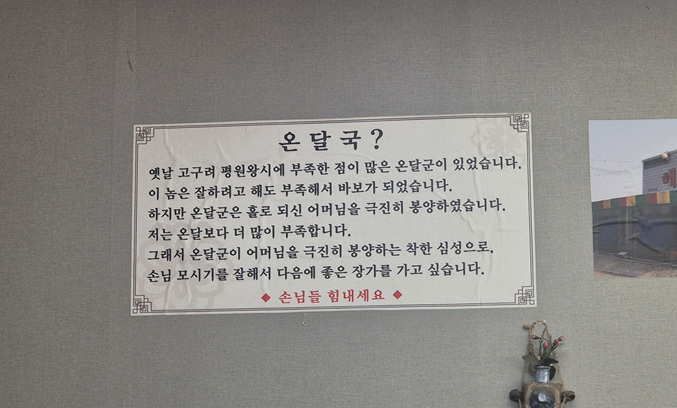 온달국?
옛날 고구려 평원왕시에 부족한 점이 많은 온달군이 있었습니다.
이 놈은 잘하려고 해도 부족해서 바보가 되었습니다.
하지만 온달군은 홀로 되신 어머님을 극진히 봉양하였습니다.
저는 온달보다 더 많이 부족합니다.
그래서 온달군이 어머님을 극진히 봉양하는 착한 심성으로,
손님 모시기를 잘해서 다음에 좋은 장가를 가고 싶습니다.
◆ 손님들 힘내세요 ◆